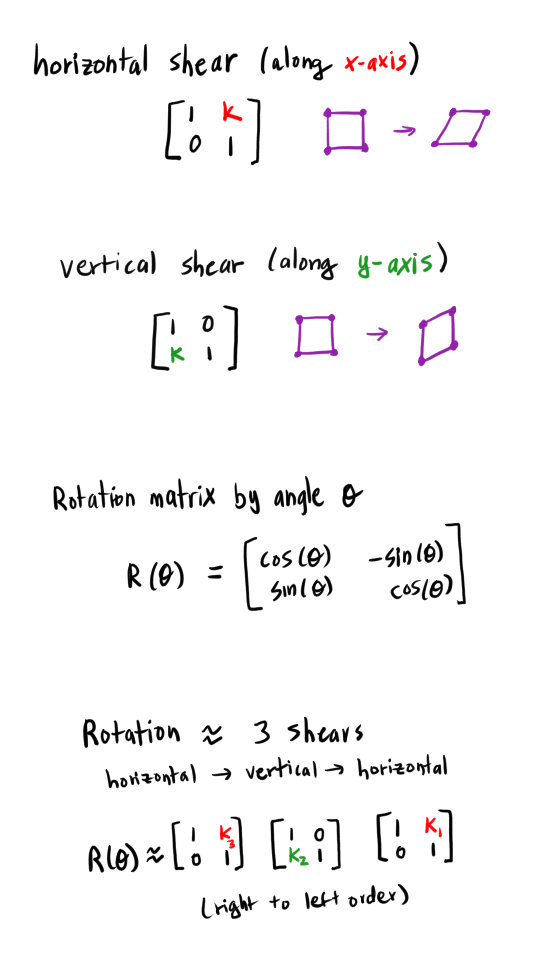 horizontal shear (along x-axis)
[1 K
0 1] →
vertical shear (along y-axis)
[1 0
K 1] →
Rotation matrix by angle θ
R(θ) = [cos(θ) -sin(θ)
sin(θ) cos(θ)]
Rotation ≈ 3 shears
horizontal → vertical → horizontal
R(θ) ≈ [1 K₃
0 1] [1 0
K₂ 1] [1 K₁
0 1]
(right to left order)